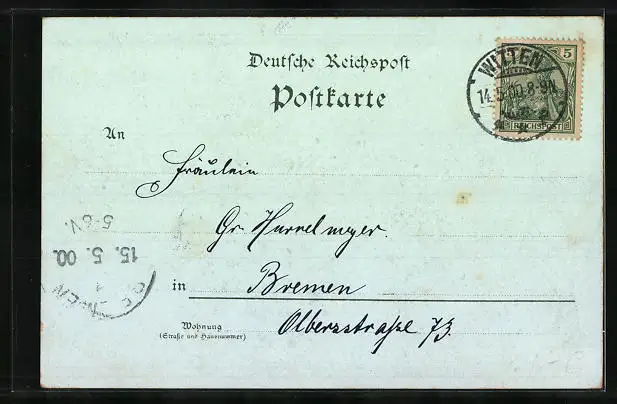 Deutsche Reichspost
Postkarte
5
WITTEN
14.5.00.8-9N.
REICHSPOST
An
Fräulein
Gr. Hurrelmeyer.
5-6V.
15. 5. 00.
in Bremen
Wohnung
(Straße und Hausnummer)
Olbersstraße 73.